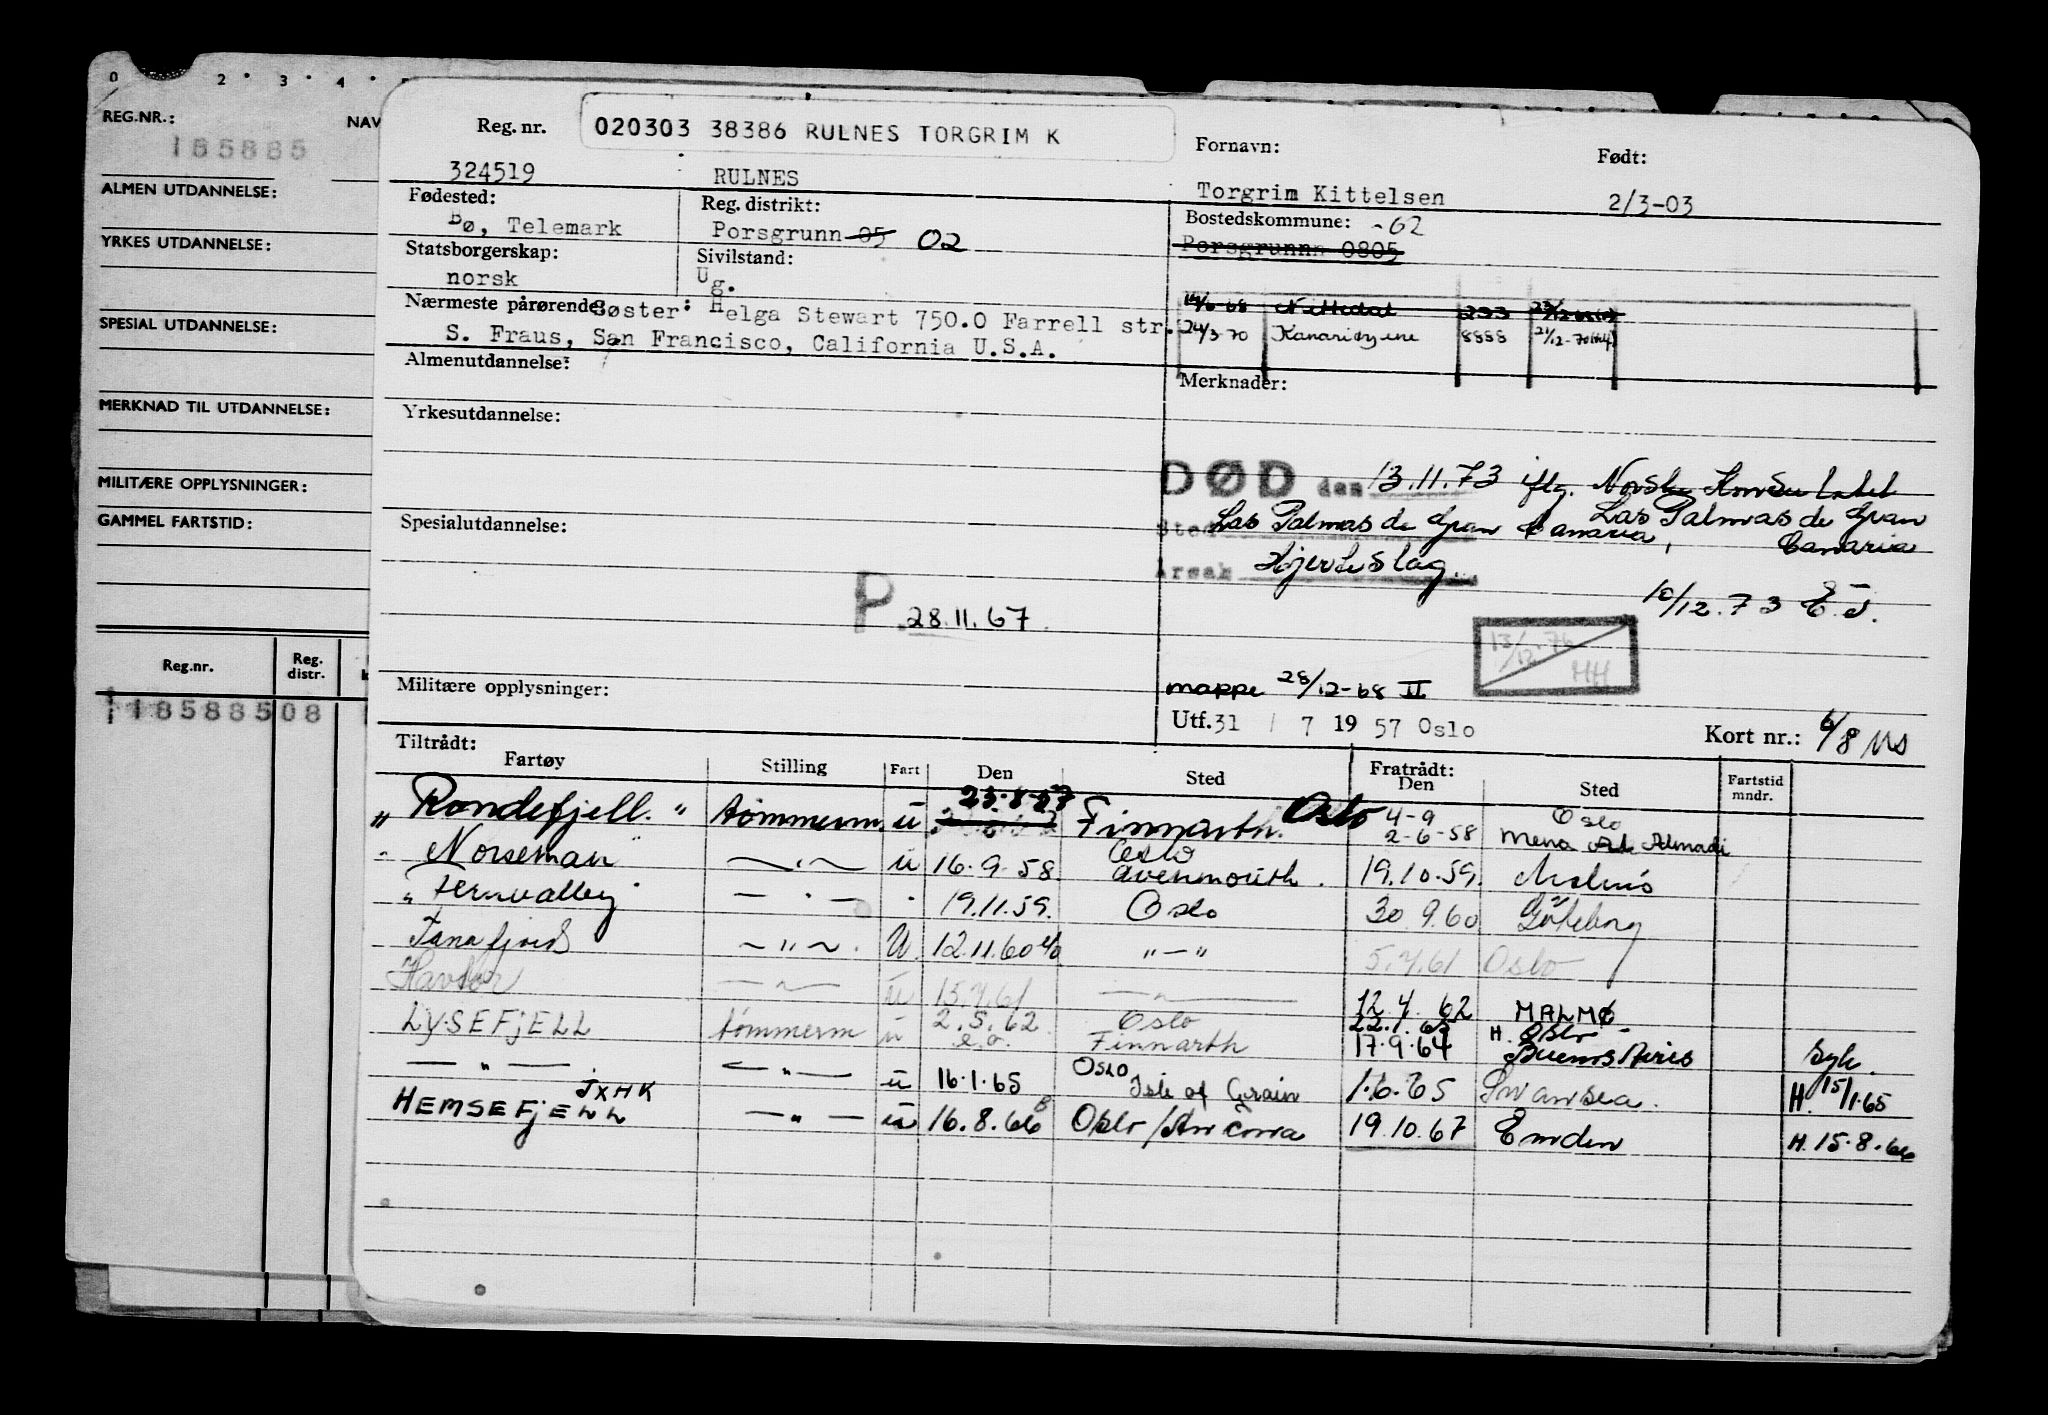 0 2 3 4
REG.NR.: NAV
185885
ALMEN UTDANNELSE:
YRKES UTDANNELSE:
SPESIAL UTDANNELSE:
MERKNAD TIL UTDANNELSE:
MILITÆRE OPPLYSNINGER:
GAMMEL FARTSTID:
Reg.nr. Reg. distr.
18588508
Reg. nr. 020303 38386 RULNES TORGRIM K Fornavn: Født:
324519 RULNES Torgrim Kittelsen 2/3-03
Fødested: Reg. distrikt: Bostedskommune: -62
Bø, Telemark Porsgrunn 05 02 Porsgrunn 0805
Statsborgerskap: Sivilstand:
norsk Ug.
Nærmeste pårørende: Søster: Helga Stewart 750.0 Farrell str.
S. Fraus, San Francisco, California U.S.A.
14/6-68 Nittedal 233
24/3-70 Kanariøyene 8888 21/12-70
Almenutdannelse: Merknader:
Yrkesutdannelse:
DØD den 13.11.73 iflg. Norske Konsulatet
Las Palmas de Gran Canaria
Sted Las Palmas de Gran Canaria,
Årsak Hjerteslag.
10/12.73 E.J.
Spesialutdannelse:
P. 28.11.67.
13/12-76 HH
Militære opplysninger: mappe 28/12-68 II
Utf. 31 / 7 1957 Oslo Kort nr.: 6/8 MS
Tiltrådt: Fratrådt:
Fartøy Stilling Fart Den Sted Den Sted Fartstid mndr.
" Rondefjell " tømmerm. u 23.8.57 Finnarth. Oslo 4-9 Oslo
2-6-58 Mena Al Ahmadi
" Norseman " — " — u 16.9.58. Oslo
Avonmouth. 19.10.59. Malmö
" Fernvalley " — " — " 19.11.59. Oslo 30.9.60 Göteborg
Tanafjord — " — U. 12.11.60 " — " 5.4.61 Oslo
Havtor — " — u 15.4.61 — " — 12.4.62 MALMØ
LYSEFJELL tømmerm u 2.5.62. Oslo 22.1.63 H. Oslo
e.o. Finnarth 17.9.64 Buenos Aires Syk.
— " — — " — u 16.1.65 Oslo
Isle of Grain 1.6.65 Swansea. H. 15/1.65
HEMSEFJELL JXHK — " — u 16.8.66 Oslo/Ancona 19.10.67 Emden H. 15.8.66